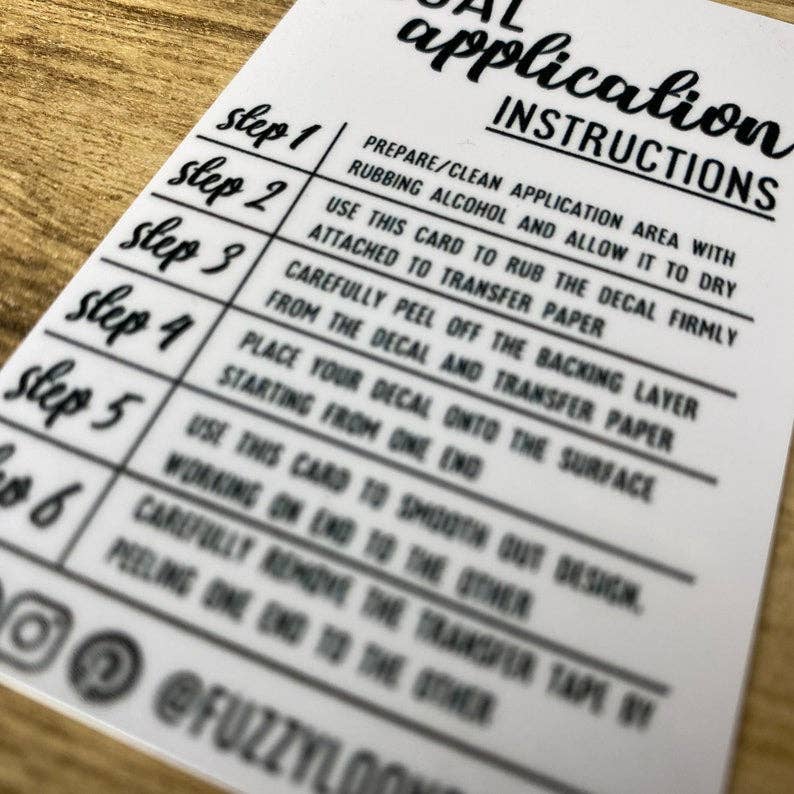 application
INSTRUCTIONS
step 1
PREPARE/CLEAN APPLICATION AREA WITH
RUBBING ALCOHOL AND ALLOW IT TO DRY
step 2
USE THIS CARD TO RUB THE DECAL FIRMLY
ATTACHED TO TRANSFER PAPER
step 3
CAREFULLY PEEL OFF THE BACKING LAYER
FROM THE DECAL AND TRANSFER PAPER
step 4
PLACE YOUR DECAL ONTO THE SURFACE
STARTING FROM ONE END
step 5
USE THIS CARD TO SMOOTH OUT DESIGN,
WORKING ON END TO THE OTHER
6
CAREFULLY REMOVE THE TRANSFER TAPE BY
PEELING ONE END TO THE OTHER